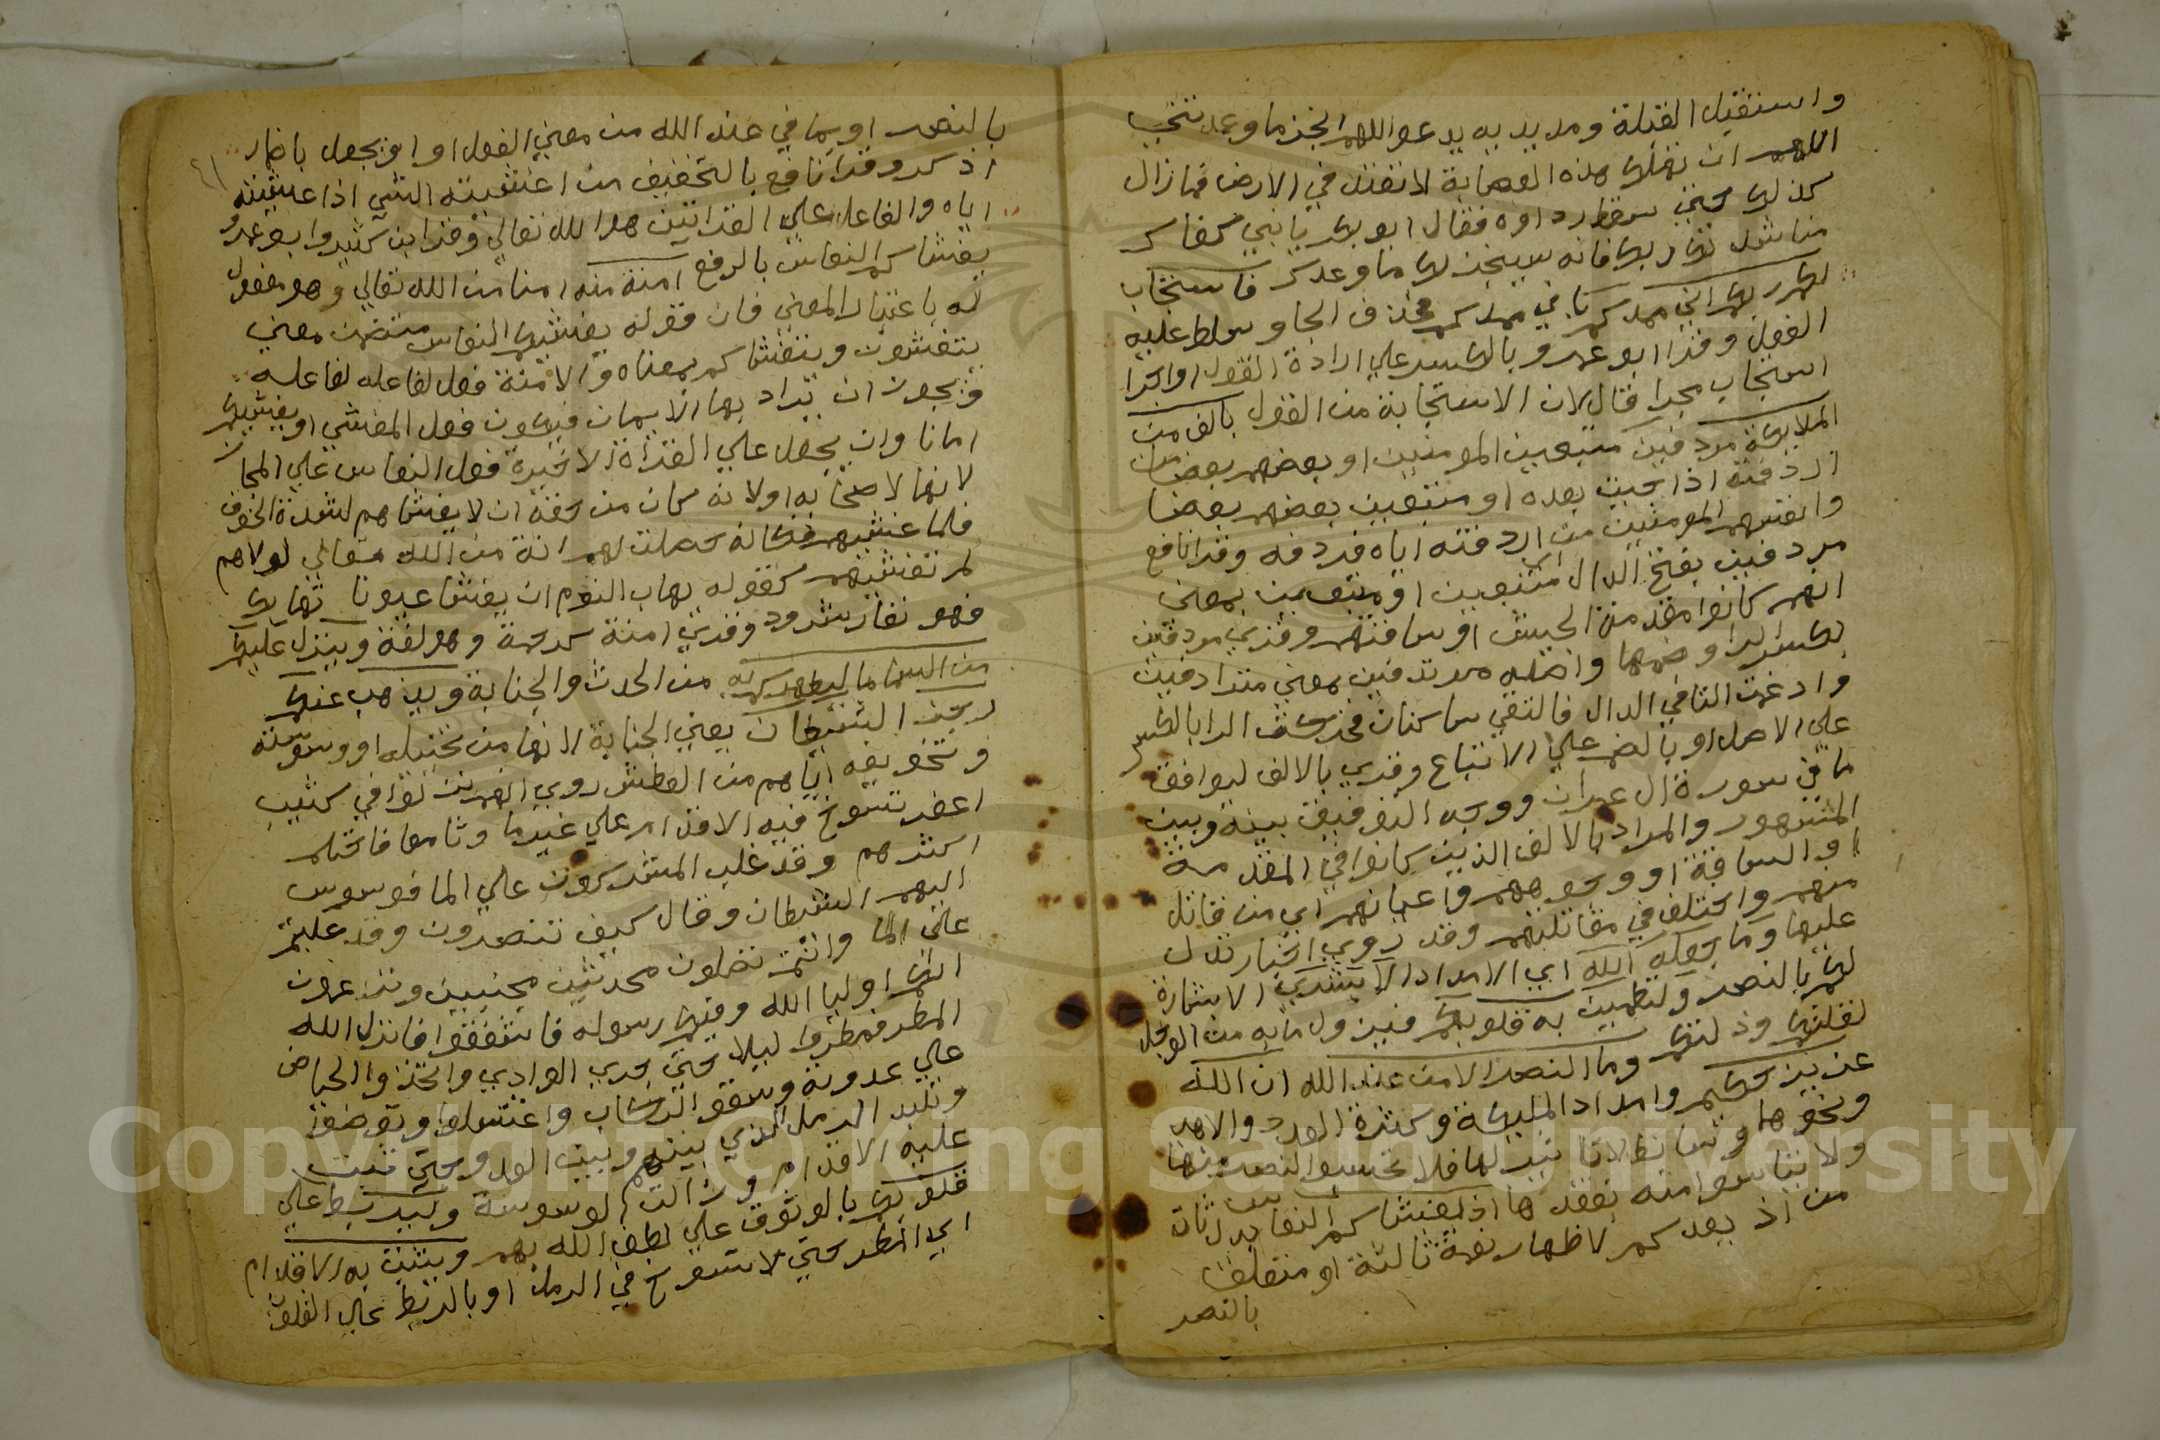 واستقبل القبلة ومد يديه يدعو اللهم انجز ما وعدتني
اللهم ان تهلك هذه العصابة لا تعبد في الارض فما زال
كذلك حتي سقط رداوه فقال ابو بكر يا نبي كفاك
مناشدتك ربك فانه سينجز لك ما وعدك فاستجاب
لكم ربكم اني ممدكم باني ممدكم فحذف الجار وسلط عليه
الفعل وقرا ابو عمرو بالكسر علي ارادة القول او اجرا
استجاب مجرا قال لان الاستجابة من القول بالف من
الملايكة مردفين متبعين المومنين او بعضهم بعضا من
اردفته اذا جيت بعده او متبعين بعضهم بعضا
وانفسهم المومنين من اردفته اياه فردفه وقرا نافع
مردفين بفتح الدال اي متبعين او متبعين بمعني
انهم كانوا مقدمة الجيش او ساقتهم وقري مردفين
بكسر الرا وضمها واصله مرتدفين بمعني مترادفين
وادغمت التا في الدال فالتقي ساكنان فحركت الرا بالكسر
علي الاصل او بالضم علي الاتباع وقري بالالف ليوافق
ما في سورة ال عمران ووجه التوفيق بينه وبين
المشهور والمراد بالالف الذين كانوا في المقدمة
او الساقة او وجوههم واعيانهم اي من قاتل
منهم واختلف في مقاتلتهم وقد روي اخبار تدل
عليها وما جعله الله اي الامداد الا بشري الا بشارة
لكم بالنصر ولتطمين به قلوبكم فيزول ما به من الوجل
لقلتكم وذلتكم وما النصر الا من عند الله ان الله
عزيز حكيم وامداد المليكة وكثرة العدد والاهب
ونحوها وسايط لا تاثير لها فلا تحسبوا النصر منها
ولا تياسوا منه بفقدها اذ يغشاكم النعاس بدل ثان
من اذ يعدكم لاظهار نعمة ثالثة او متعلق
بالنصر
٤١
بالنصر او بما في عند الله من معني الفعل او او بجعل باضمار
اذكر وقرا نافع بالتخفيف من اغشيته الشي اذا غشيته
اياه والفاعل علي القراتين هو الله تعالي وقرا ابن كثير وابو عمرو
يغشاكم النعاس بالرفع امنة منه امنا من الله تعالي وهو مفعول
له باعتبار المعني فان قوله يغشيكم النعاس متضمن معني
يتغشون ويتغشاكم بمعناه والامنة فعل لفاعله لفاعله
ويجوز ان يراد بها الايمان فيكون فعل المغشي او يغشيكم
امانا وان يجعل علي القراة الاخيرة فعل النعاس علي المجاز
لانها لاصحابه او لانه كان من حقه ان لا يغشاهم لشدة الخوف
فلما غشيهم فكانه حصلت لهم امنة من الله تعالي لولاهم
لم تغشيهم كقوله يهاب النوم ان يغشا عيونا تهابك
فهو نفار شرود وقري امنة كرحمة وهو لغة وينزل عليكم
من السما ما ليطهركم به من الحدث والجنابة ويذهب عنكم
رجز الشيطان يعني الجنابة لانها من تخييله او وسوسته
وتخويفه اياهم من العطش روي انهم نزلوا في كثيب
اعفر تسوخ فيه الاقدام علي غير ما وناموا فاحتلم
اكثرهم وقد غلب المشركون علي الما فوسوس
اليهم الشيطان وقال كيف تنصرون وقد غلبتم
علي الما وانتم تصلون محدثين مجنبين وتزعمون
انكم اوليا الله وفيكم رسوله فاشفقوا فانزل الله
المطر فمطروا ليلا حتي جري الوادي واتخذوا الحياض
علي عدوته وسقوا الركاب واغتسلوا وتوضوا
وتلبد الرمل الذي بينهم وبين العدو حتي ثبتت
عليه الاقدام وزالت الوسوسة وليربط علي
قلوبكم بالوثوق علي لطف الله بهم ويثبت به الاقدام
اي المطر حتي لا تسوخ في الرمل او بالربط علي القلوب
Copyright © King Saud University